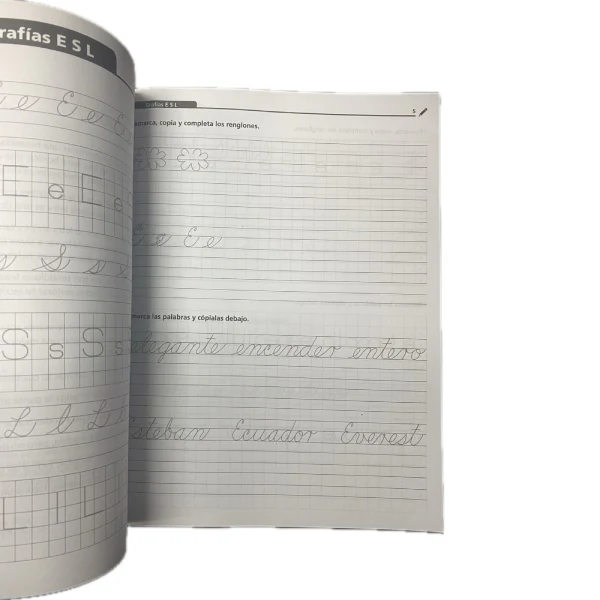 rafías E S L
e E e E
E e E e
s S s s
S s S s
L l L l
L l L
Grafías E S L
5
marca, copia y completa los renglones.
E e E e
marca las palabras y cópialas debajo.
elegante encender entero
Esteban Ecuador Everest